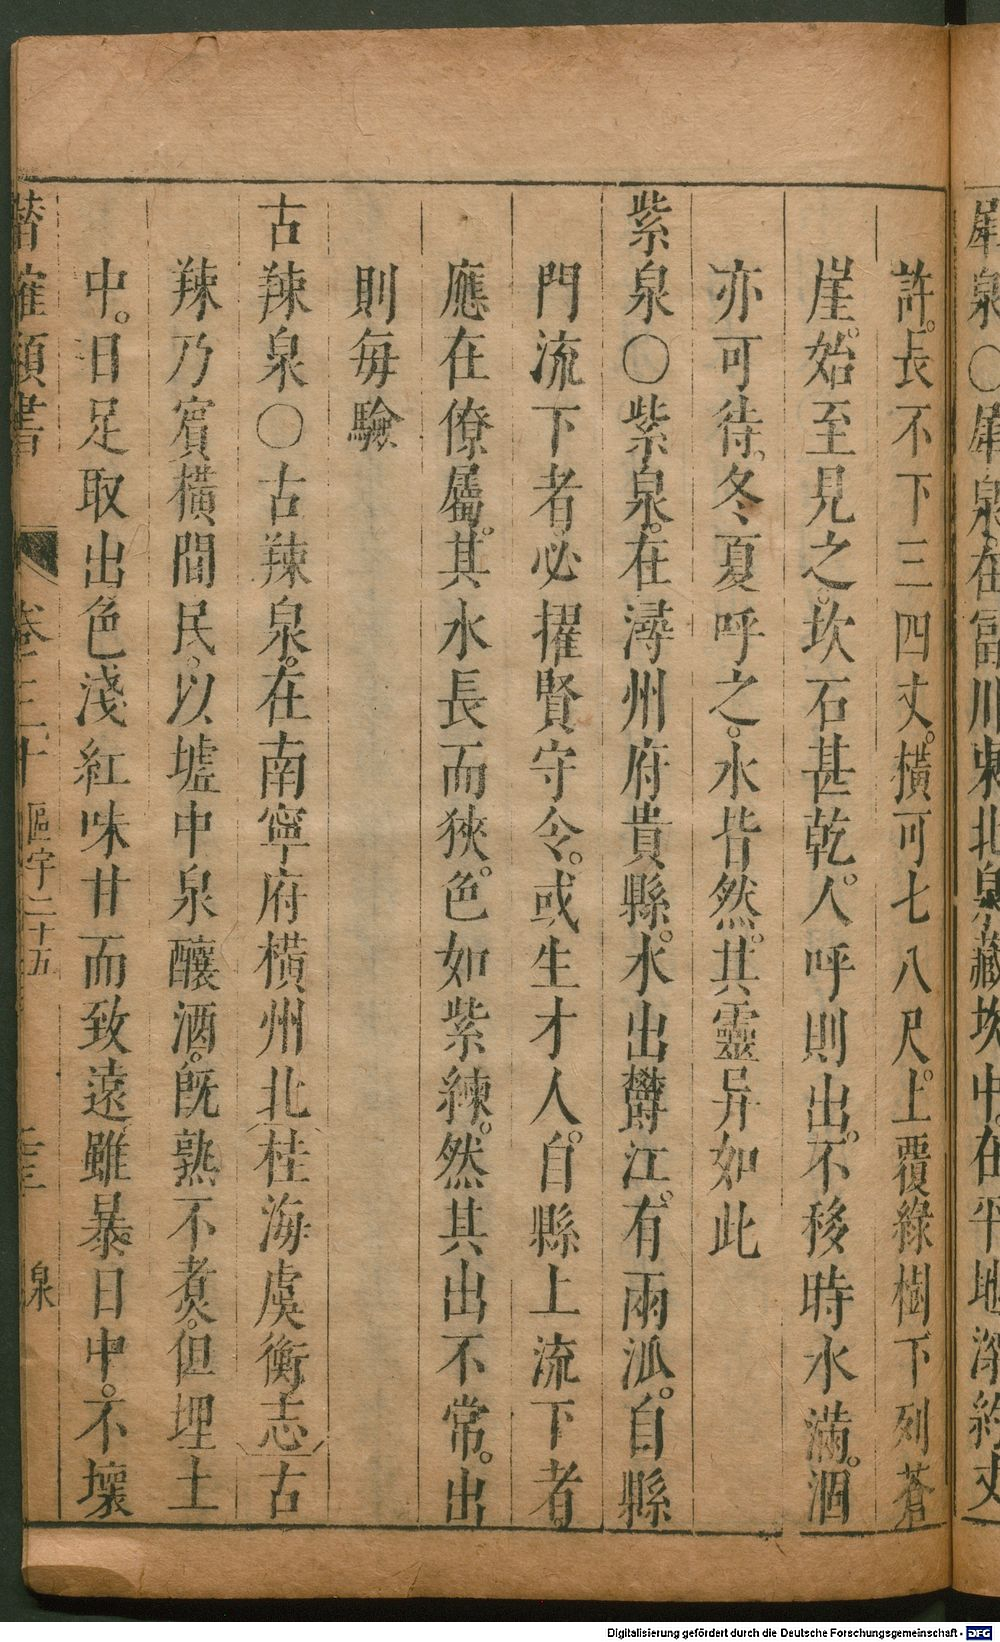 犀泉〇犀泉。在富川東北泉藏坎中。在平地深約丈
許。長不下三四丈。橫可七八尺。上覆綠樹下列蒼
崖。始至見之。坎石甚乾。人呼則出。不移時水滿。涸
亦可待。冬夏呼之。水皆然。其靈异如此
紫泉〇紫泉。在潯州府貴縣。水出欝江。有兩泒。自縣
門流下者。必擢賢守令。或生才人。自縣上流下者。
應在僚屬。其水長而狹。色如紫練。然其出不常。出
則每驗
古辣泉〇古辣泉。在南寧府橫州北桂海虞衡志古
辣乃賓橫間民。以墟中泉釀酒。旣熟不煮。但埋土
中。日足取出色淺紅味甘而致遠雖暴日中。不壞
潛確類書 卷三十 區宇二十五 泉
Digitalisierung gefördert durch die Deutsche Forschungsgemeinschaft - DFG